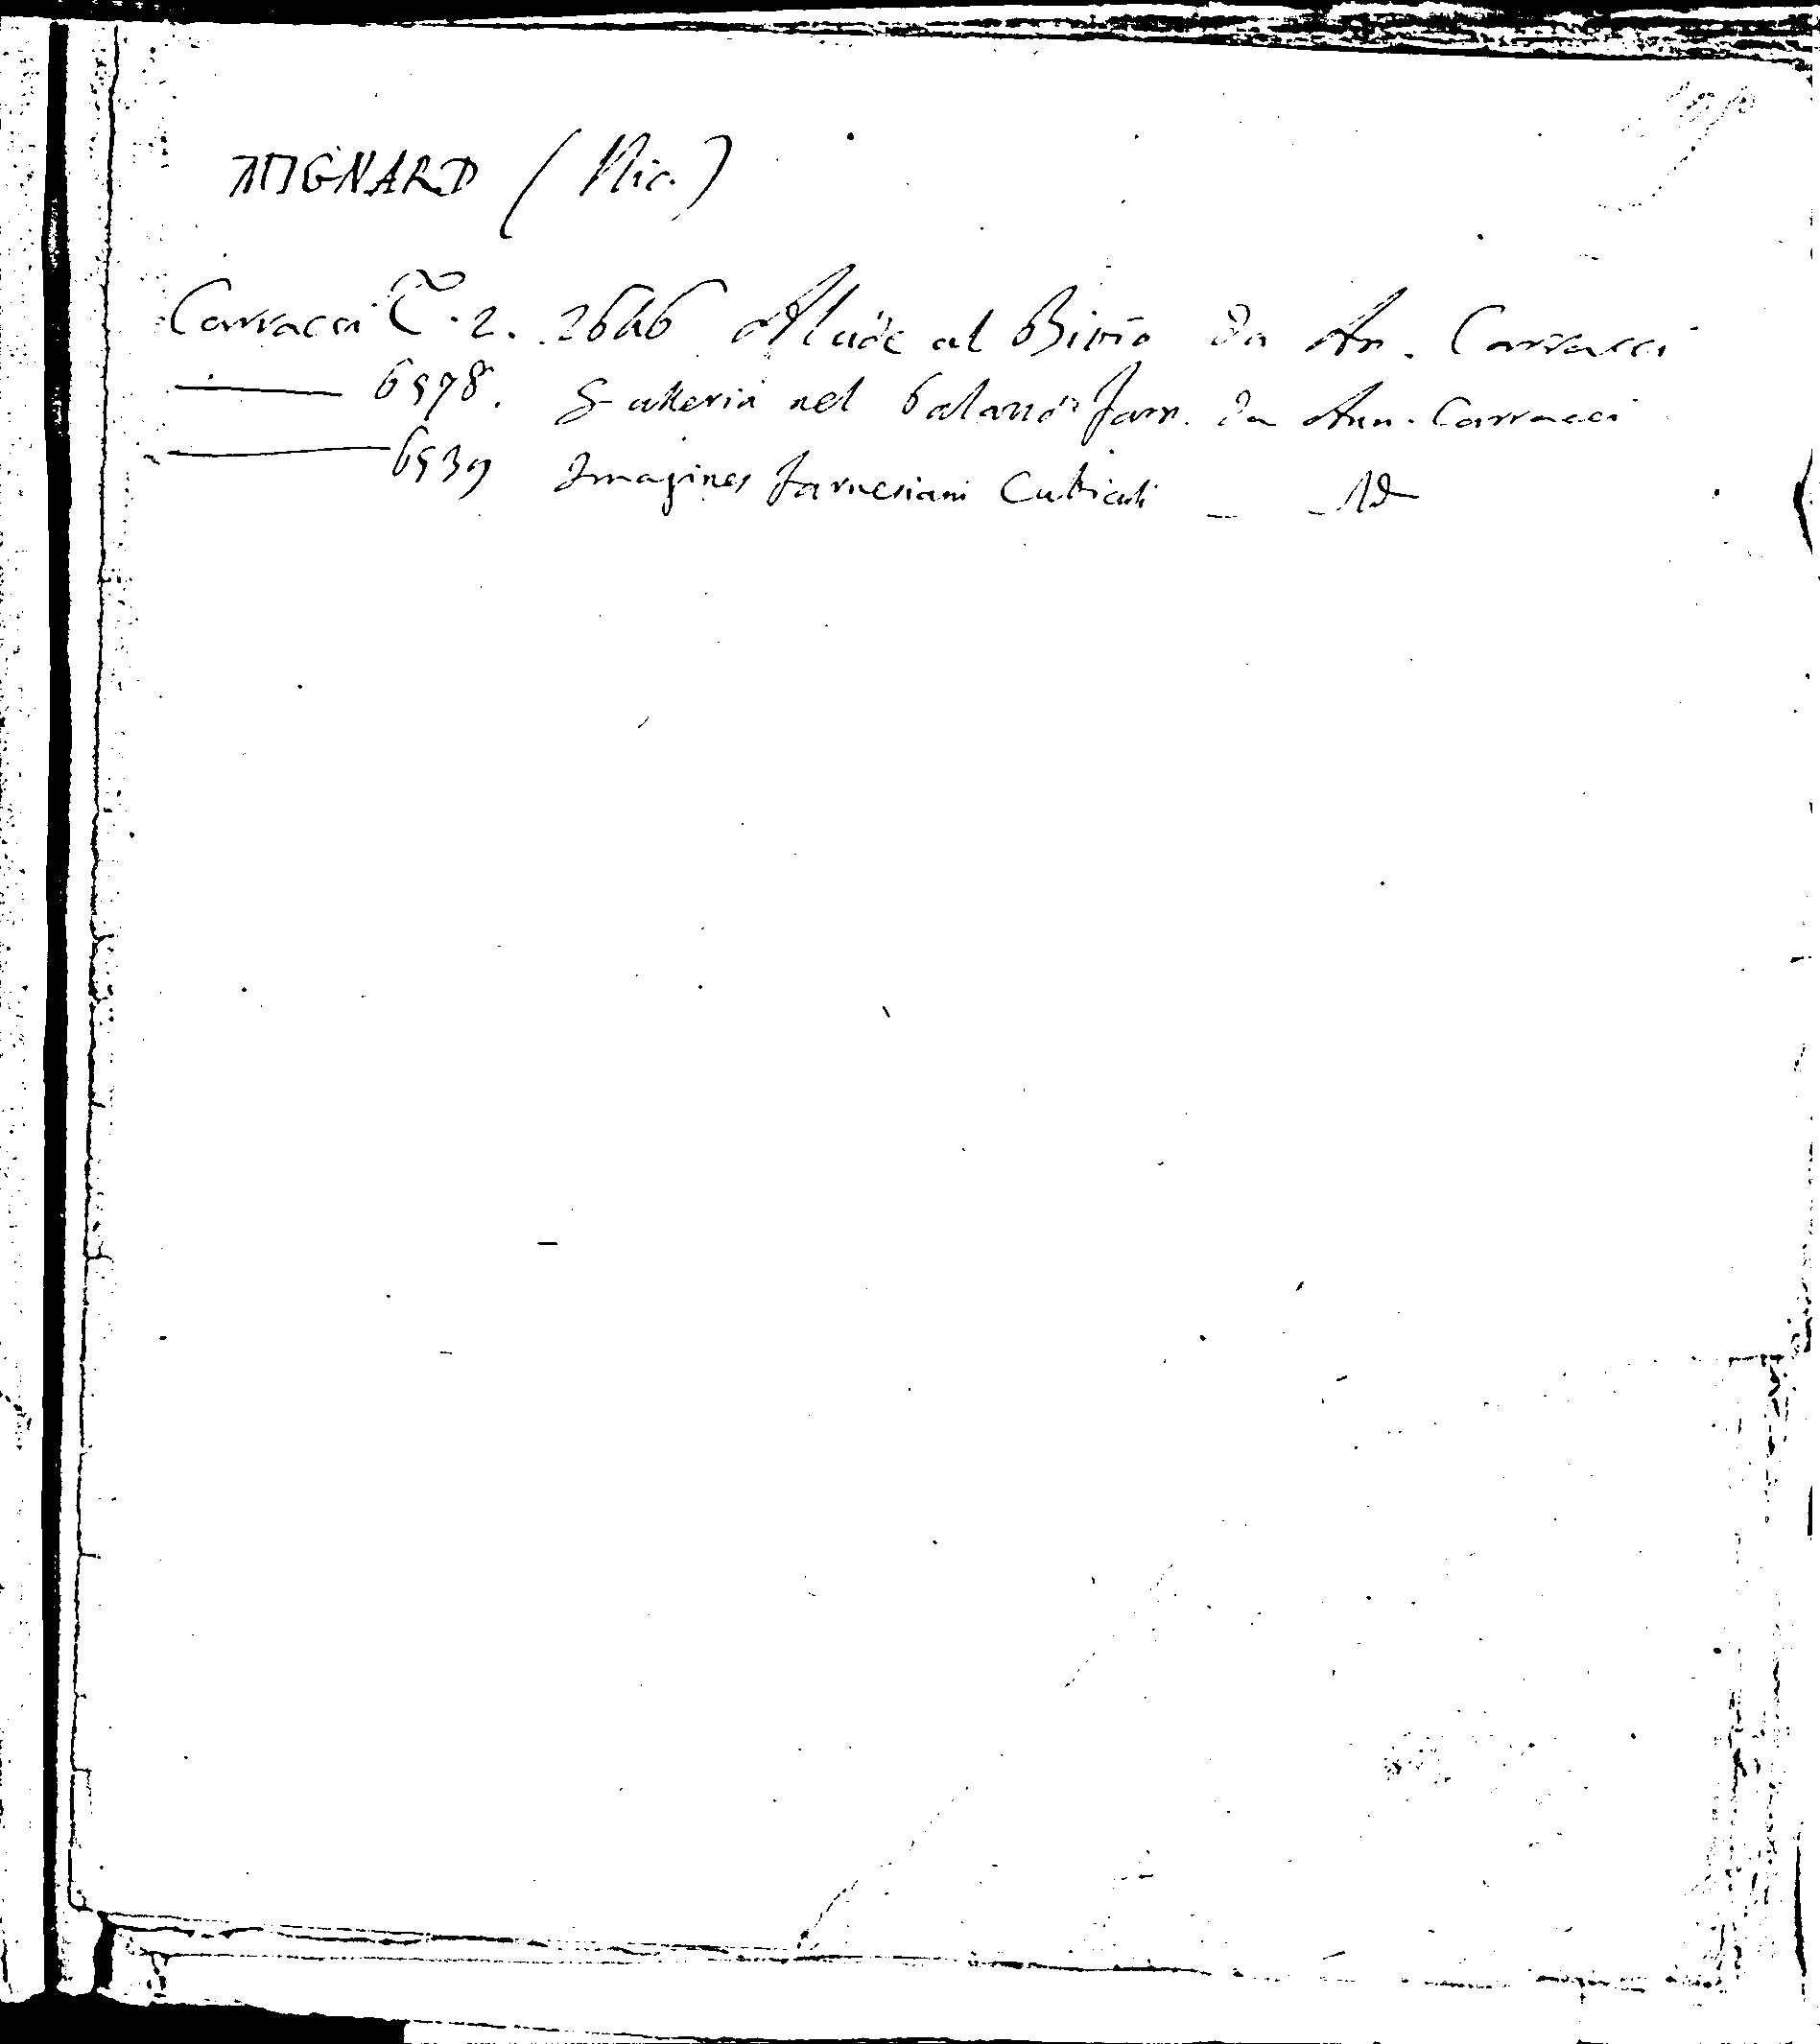 MIGNARD (Nic.)
Carracci T. 2. 2646 Alcide al Bivio da An. Carracci
6978. Galleria nel Palazzo Farn. da Ann. Carracci
6939 Imagines Farnesiani Cubiculi _ _ Id